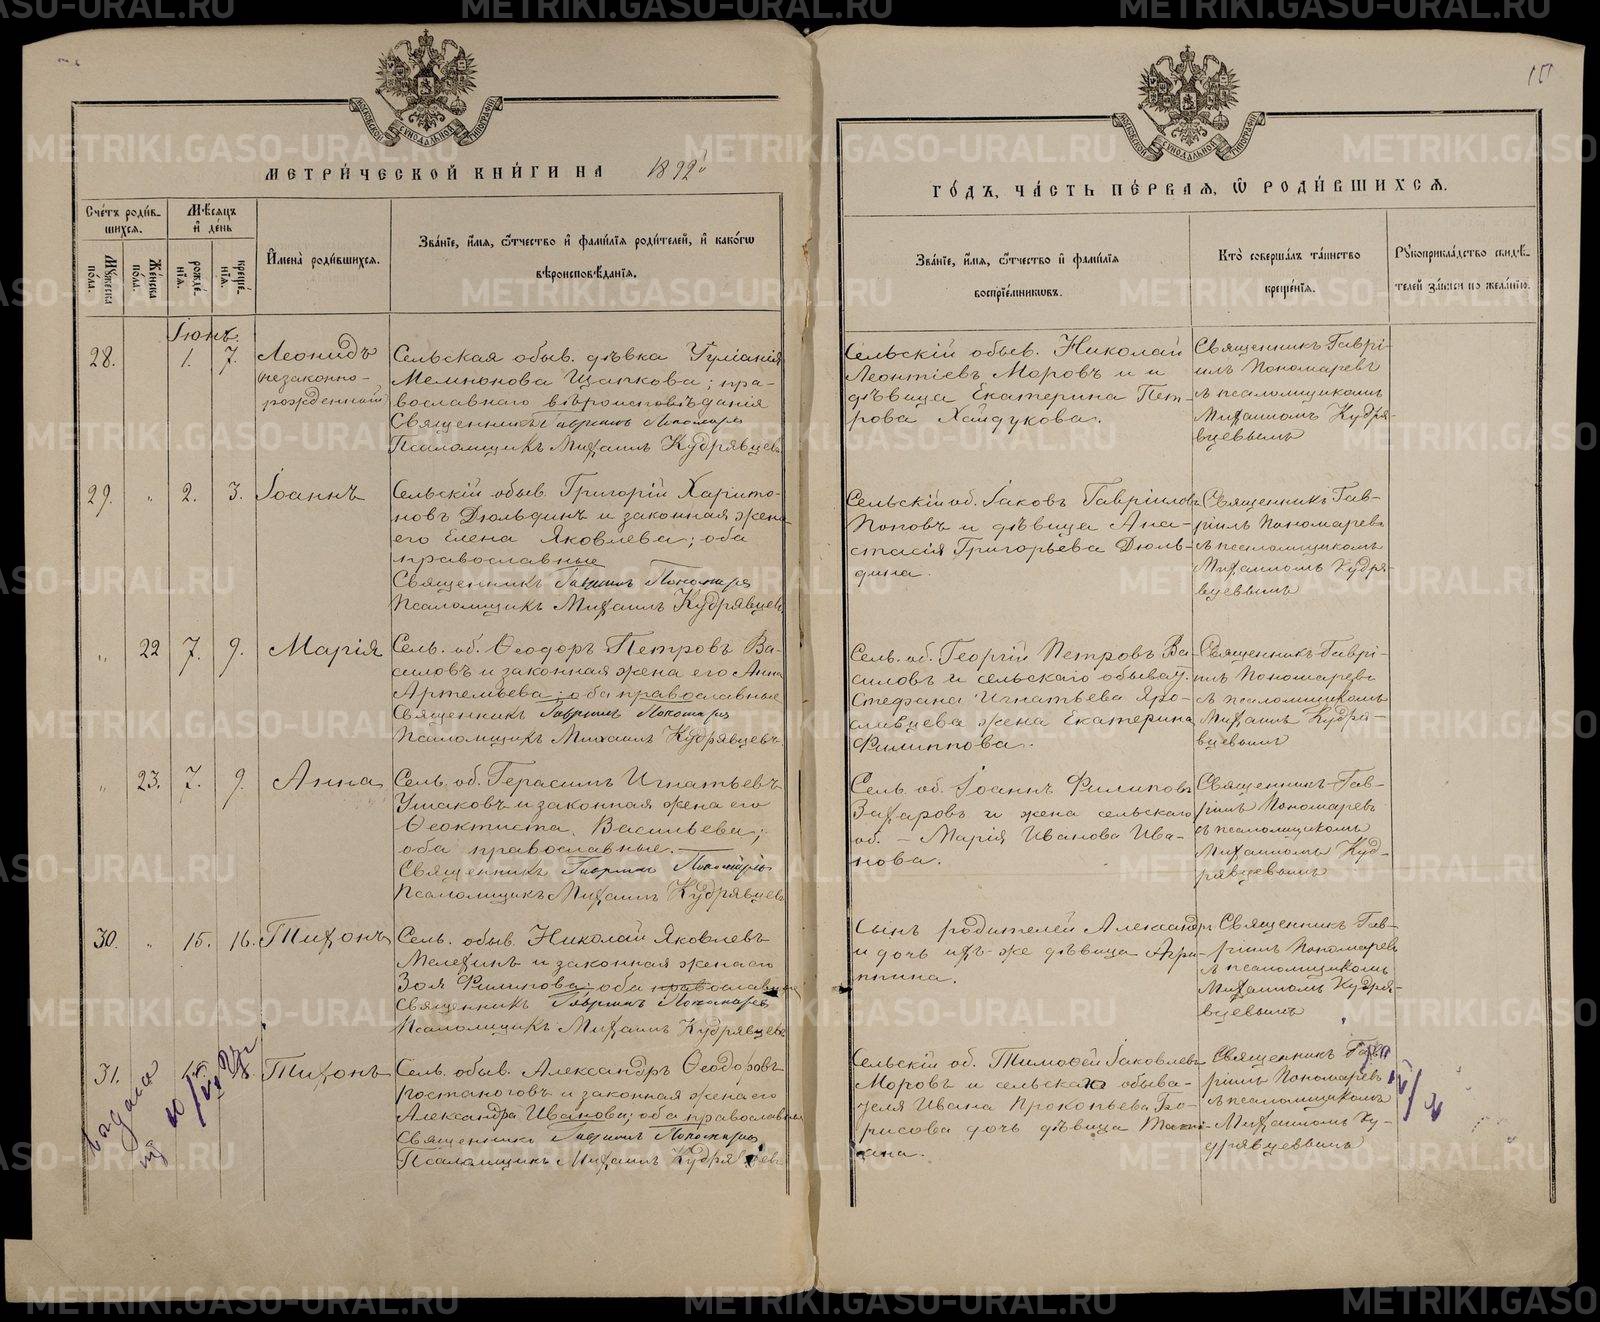 МЕТРИ́ЧЕСКОЙ КНИ́ГИ НА 1892
ГО́ДЪ, ЧА́СТЬ ПЕ́РВАЯ, Ѿ РОДИ́ВШИХСЯ.
Сче́тъ роди́в-
шихся.
Мѣ́сяцъ
и҆ де́нь
Му́жеска
по́ла.
Же́нска
по́ла.
рожде́-
нїя.
креще́-
нїя.
И҆мена̀ роди́вшихся.
Зва́нїе, и҆́мя, ѻ҆́тчество и҆ фами́лїя роди́телей, и҆ како́гѡ
вѣроисповѣ́данїя.
Зва́нїе, и҆́мя, ѻ҆́тчество и҆ фами́лїя
воспрїе́мникѡвъ.
Кто̀ соверша́лъ та́инство
креще́нїя.
Рꙋкоприкла́дство свидѣ́-
телей за́писи по жела́нїю.
Іюнь.
28. 1. 7. Леонидъ
(незаконно-
рожденный)
Сельская обыв. дѣвка Іуліанія
Мемнонова Щапкова; пра-
вославнаго вѣроисповѣданія
Священникъ Гавріилъ Пономаревъ
Псаломщикъ Михаилъ Кудрявцевъ
Сельскій обыв. Николай
Леонтіевъ Моровъ и и
дѣвица Екатерина Пет-
рова Хайдукова.
Священникъ Гаврі-
илъ Пономаревъ
съ псаломщикомъ
Михаиломъ Кудря-
вцевымъ
29. " 2. 3. Іоаннъ
Сельскій обыв. Григорій Харито-
новъ Дюльдинъ и законная жена
его Елена Яковлева; оба
православные
Священникъ Гавріилъ Пономаревъ
Псаломщикъ Михаилъ Кудрявцевъ
Сельскій об. Іаковъ Гавріиловъ
Поповъ и дѣвица Ана-
стасія Григорьева Дюль-
дина.
Священникъ Гав-
ріилъ Пономаревъ
съ псаломщикомъ
Михаиломъ Кудря-
вцевымъ
" 22 7. 9. Марія
Сель. об. Ѳеодоръ Петровъ Ва-
силовъ и законная жена его Анна
Артемьева; оба православные
Священникъ Гавріилъ Пономаревъ
Псаломщикъ Михаилъ Кудрявцевъ
Сель. об. Георгій Петровъ Ва-
силовъ и сельскаго обыват.
Стефана Игнатьева Яро-
славцева жена Екатерина
Филиппова.
Священникъ Гаврі-
илъ Пономаревъ
съ псаломщикомъ
Михаилъ Кудря-
вцевымъ
" 23. 7. 9. Анна
Сель. об. Герасимъ Игнатьевъ
Ушаковъ и законная жена его
Ѳеоктиста Васильева;
оба православные.
Священникъ Гавріилъ Пономаревъ
Псаломщикъ Михаилъ Кудрявцевъ
Сель. об. Іоаннъ Филиповъ
Захаровъ и жена сельскаго
об. - Марія Иванова Ива-
нова.
Священникъ Гав-
ріилъ Пономаревъ
съ псаломщикомъ
Михаиломъ Куд-
рявцевымъ
30. " 15. 16. Тихонъ
Сель. обыв. Николай Яковлевъ
Мелехинъ и законная жена его
Зоя Филипова; оба православные
Священникъ Гавріилъ Пономаревъ
Псаломщикъ Михаилъ Кудрявцевъ
Сынъ родителей Александръ
и дочь ихъ-же дѣвица Агри-
ппина.
Священникъ Гав-
ріилъ Пономаревъ
съ псаломщикомъ
Михаиломъ Кудря-
вцевымъ
31. Тихонъ
Сель. обыв. Александръ Ѳеодоровъ
Ростаноговъ и законная жена его
Александра Иванова; оба православные
Священникъ Гавріилъ Пономаревъ
Псаломщикъ Михаилъ Кудрявцевъ
Сельскій об. Тимофей Іаковлевъ
Моровъ и сельскаго обыва-
теля Ивана Прокопьева Бо-
рисова дочь дѣвица Тати-
ана.
Священникъ Гав-
ріилъ Пономаревъ
съ псаломщикомъ
Михаиломъ Ку-
дрявцевымъ
выдана
METRIKI.GASO-URAL.RU